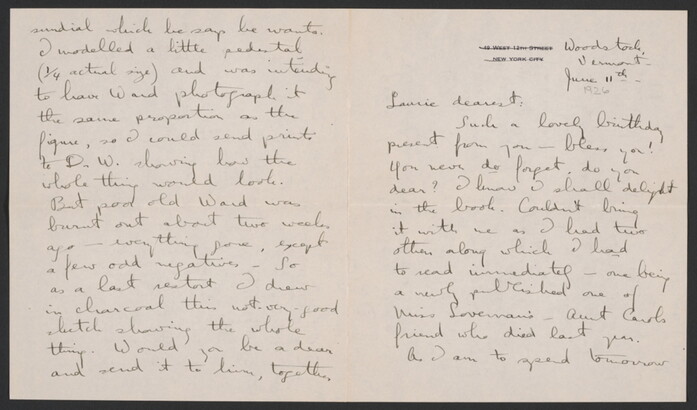 49 WEST 12TH STREET
NEW YORK CITY
Woodstock,
Vermont –
June 11th –
1926
Laurie dearest:
Such a lovely birthday
present from you – bless you!
You never do forget, do you
dear? I know I shall delight
in the book. Couldn't bring
it with me as I had two
others along which I had
to read immediately – one being
a newly published one of
Miss Loveman's – Aunt Carol's
friend who died last year.
As I am to spend tomorrow
sundial which he says he wants.
I modelled a little pedestal
(1/4 actual size) and was intending
to have Ward photograph it
the same proportion as the
figure, so I could send prints
to Dr. W. showing how the
whole thing would look.
But poor old Ward was
burnt out about two weeks
ago – everything gone, except
a few odd negatives – So
as a last restort I drew
in charcoal this not-very-good
sketch showing the whole
thing. Would you be a dear
and send it to him, together